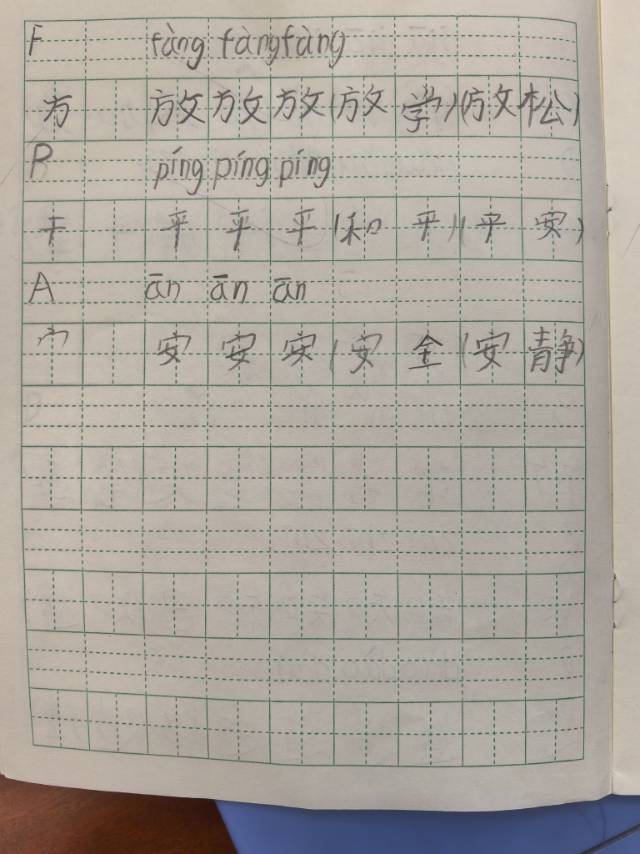 F fàng fàng fàng
方 放 放 放 (放 学) (放 松)
P píng píng píng
干 平 平 平 (和 平) (平 安)
A ān ān ān
宀 安 安 安 (安 全 (安 静)